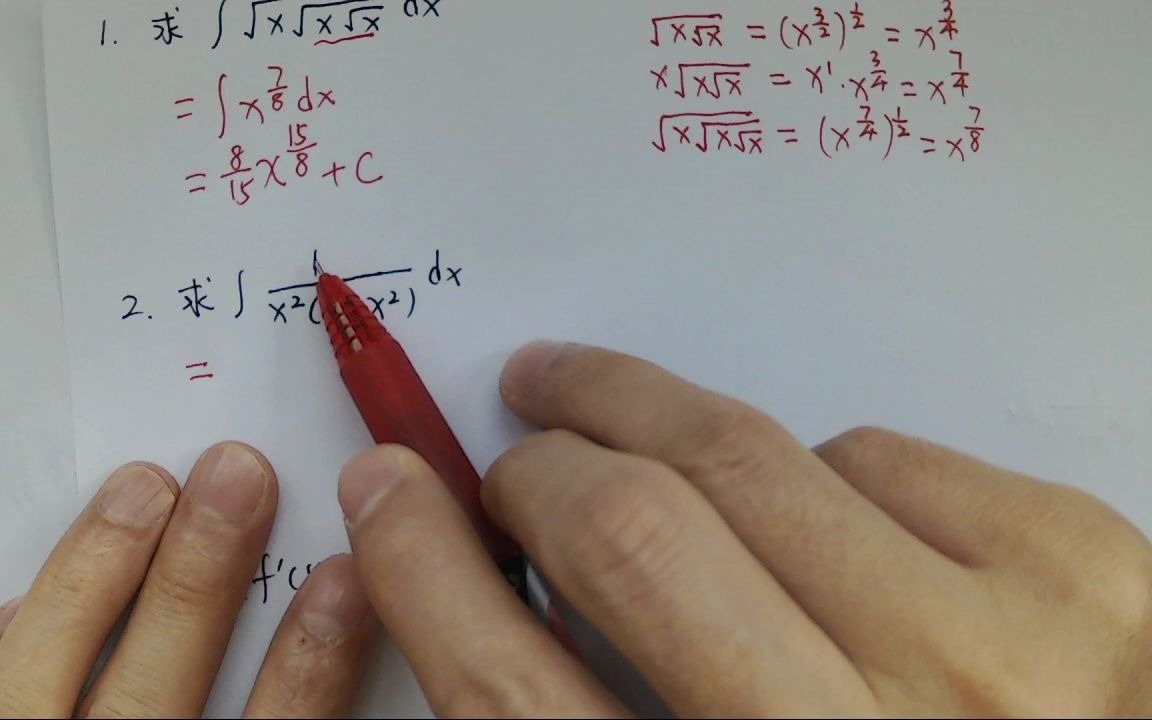 1. 求 ∫ √(x√(x√x)) dx
= ∫ x^(7/8) dx
= 8/15 x^(15/8) + C
√(x√x) = (x^(3/2))^(1/2) = x^(3/4)
x√(x√x) = x^1 · x^(3/4) = x^(7/4)
√(x√(x√x)) = (x^(7/4))^(1/2) = x^(7/8)
2. 求 ∫ 1/(x²( x²)) dx
=
f'(